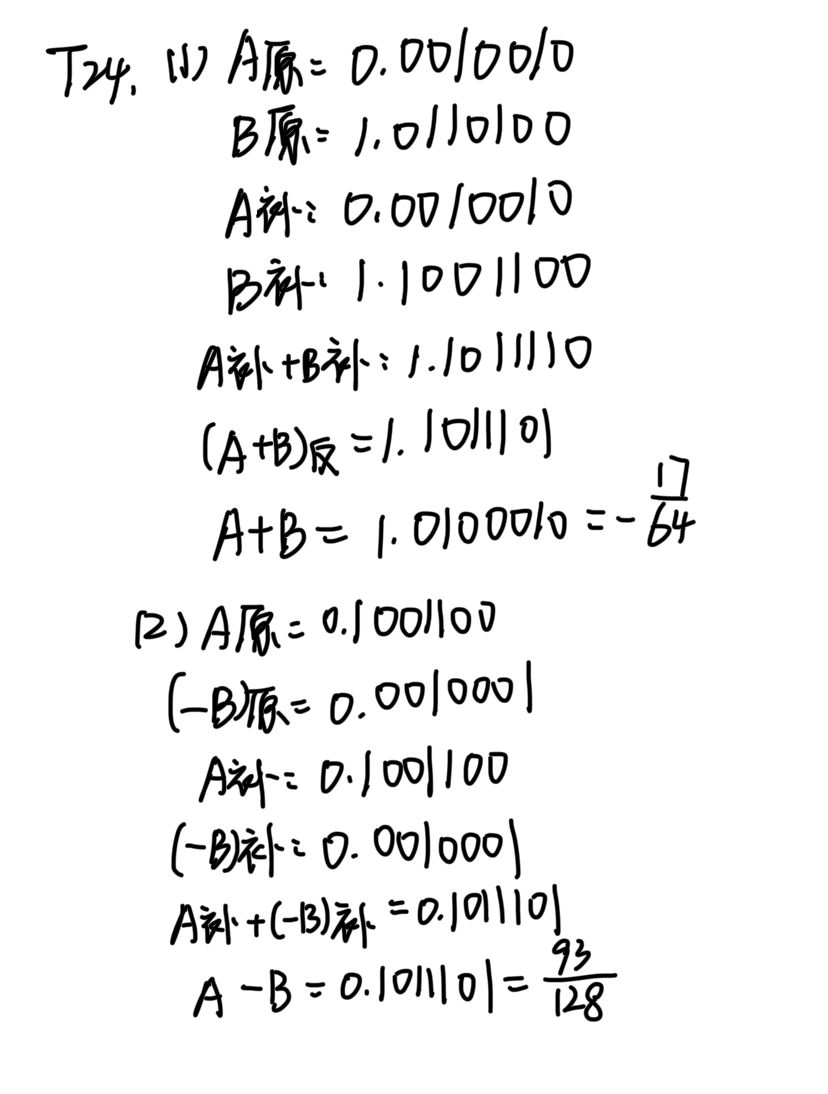 T24. (1) A原 = 0.0010010
B原 = 1.0110100
A补: 0.0010010
B补: 1.1001100
A补+B补: 1.1011110
(A+B)反 = 1.1011101
A+B = 1.0100010 = -17/64
(2) A原 = 0.1001100
(-B)原 = 0.0010001
A补 = 0.1001100
(-B)补: 0.0010001
A补+(-B)补 = 0.1011101
A-B = 0.1011101 = 93/128